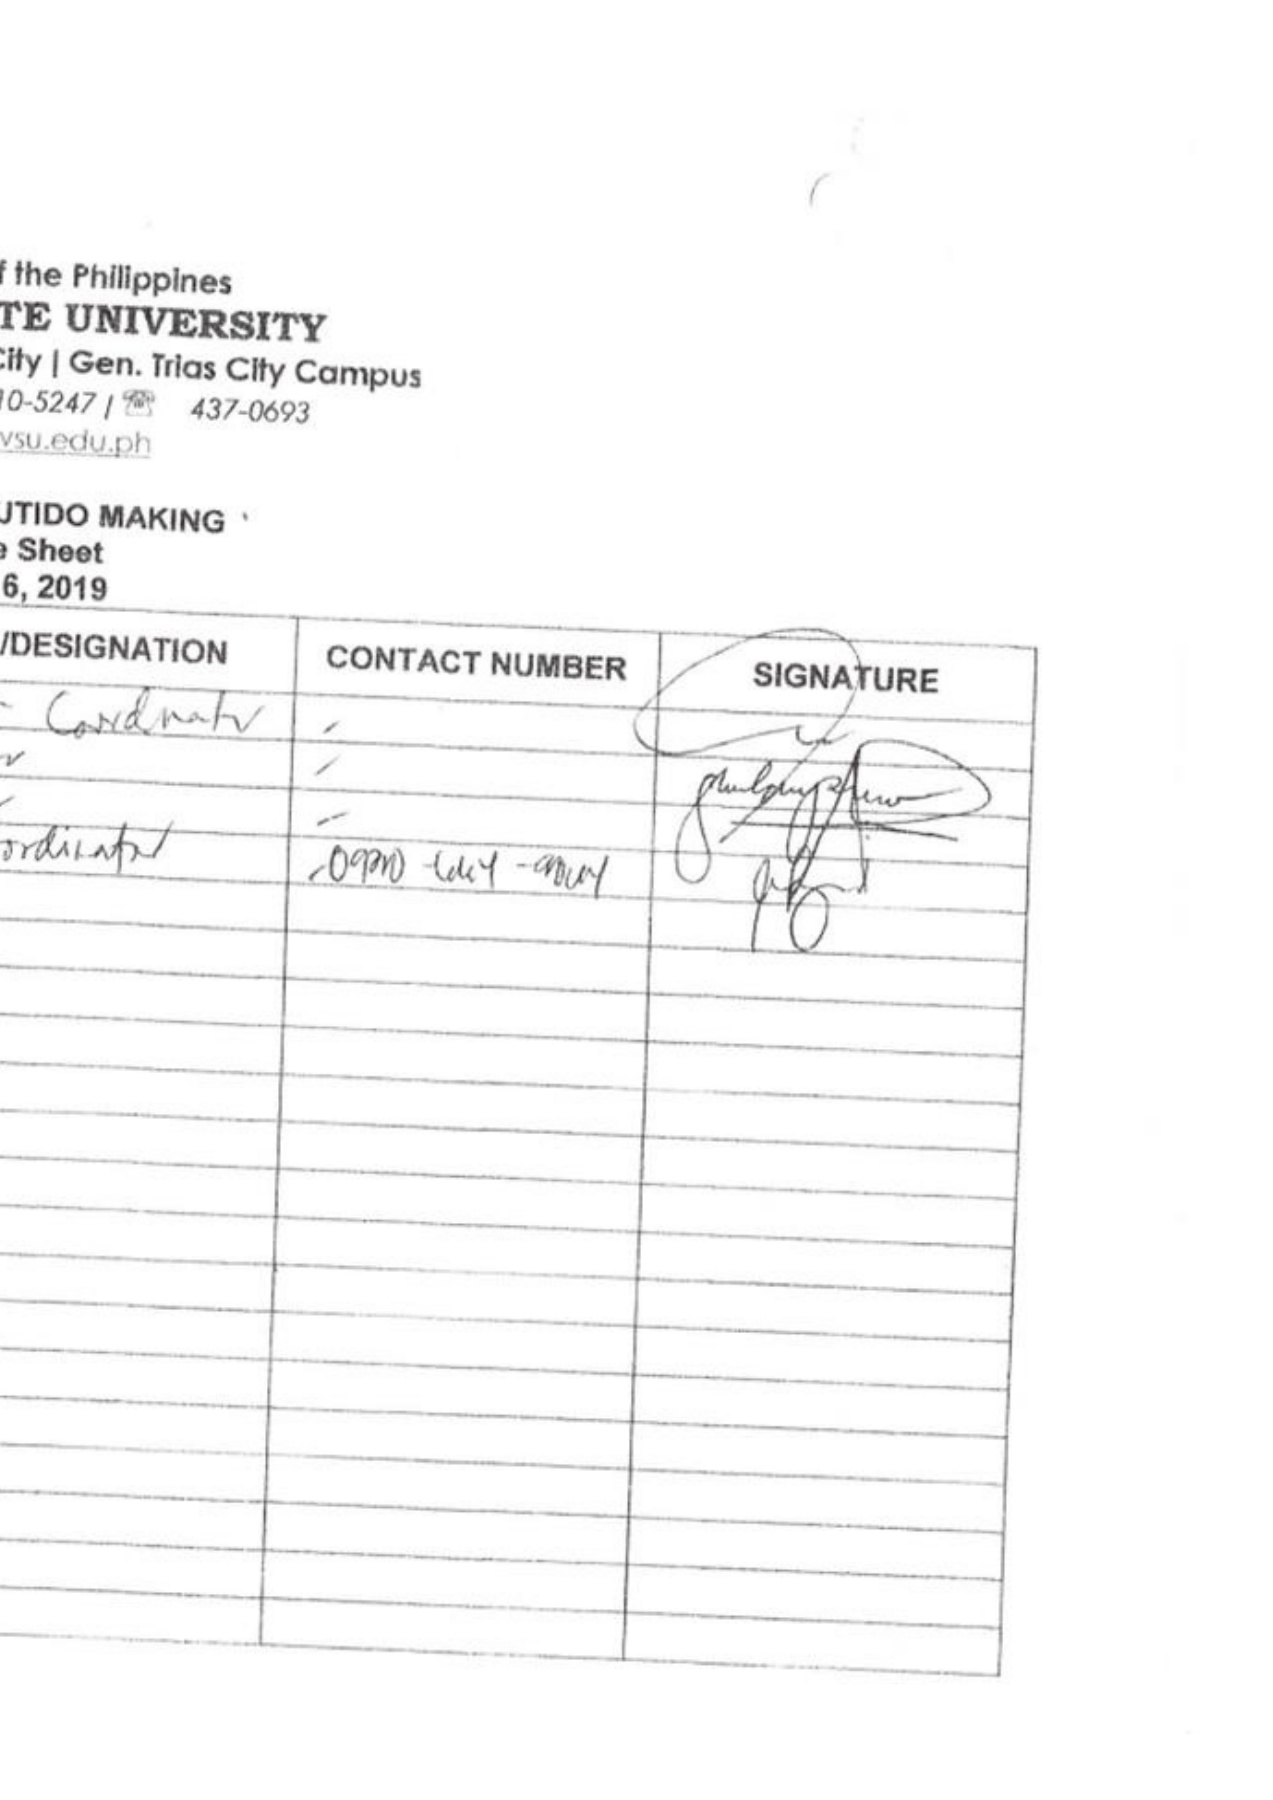 f the Philippines
TE UNIVERSITY
City | Gen. Trias City Campus
10-5247 | ☏ 437-0693
vsu.edu.ph
UTIDO MAKING
e Sheet
6, 2019
/DESIGNATION CONTACT NUMBER SIGNATURE
- Coordinator
ordinator